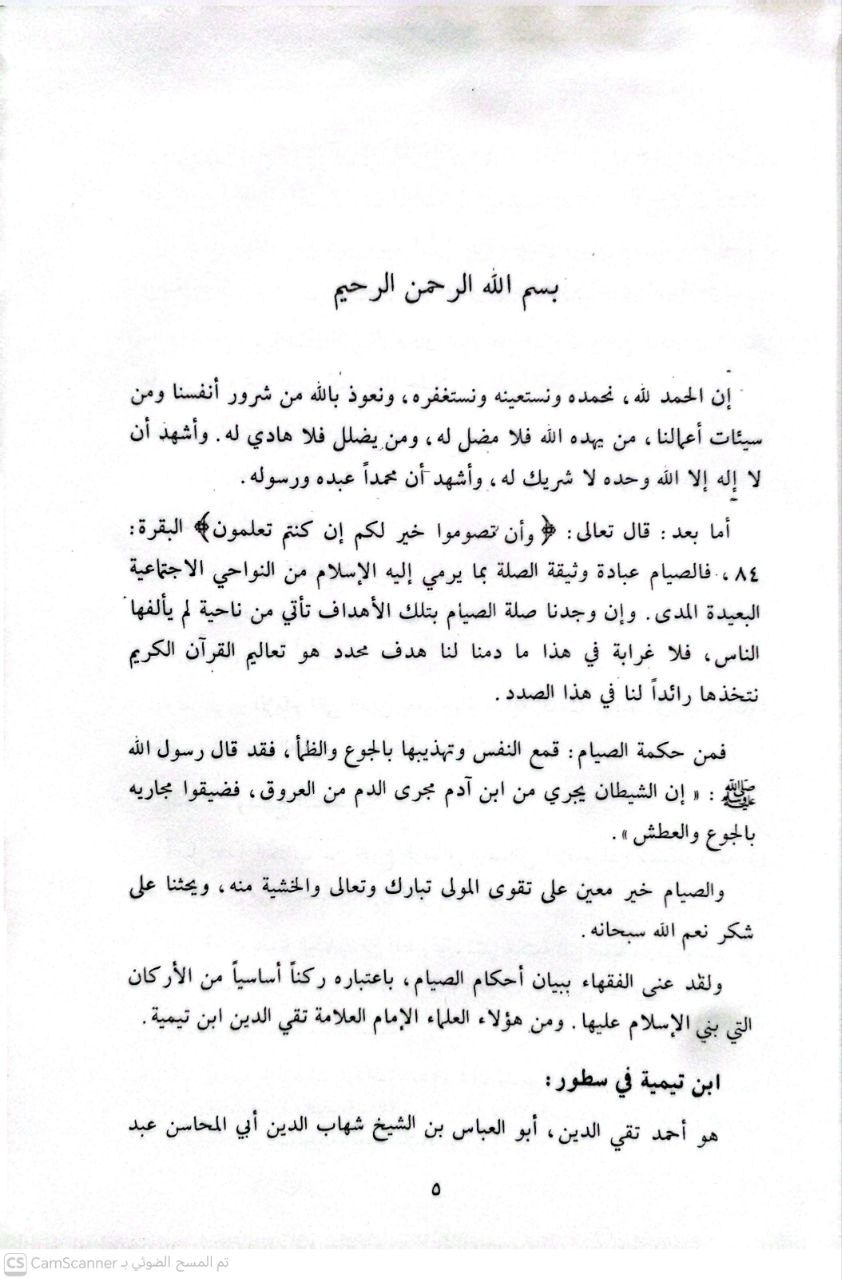 بسم الله الرحمن الرحيم
إن الحمد لله، نحمده ونستعينه ونستغفره، ونعوذ بالله من شرور أنفسنا ومن
سيئات أعمالنا، من يهده الله فلا مضل له، ومن يضلل فلا هادي له. وأشهد أن
لا إله إلا الله وحده لا شريك له، وأشهد أن محمداً عبده ورسوله.
أما بعد: قال تعالى: ﴿وأن تصوموا خير لكم إن كنتم تعلمون﴾ البقرة:
٨٤، فالصيام عبادة وثيقة الصلة بما يرمي إليه الإسلام من النواحي الاجتماعية
البعيدة المدى. وإن وجدنا صلة الصيام بتلك الأهداف تأتي من ناحية لم يألفها
الناس، فلا غرابة في هذا ما دمنا لنا هدف محدد هو تعاليم القرآن الكريم
نتخذها رائداً لنا في هذا الصدد.
فمن حكمة الصيام: قمع النفس وتهذيبها بالجوع والظمأ، فقد قال رسول الله
ﷺ: « إن الشيطان يجري من ابن آدم مجرى الدم من العروق، فضيقوا مجاريه
بالجوع والعطش ».
والصيام خير معين على تقوى المولى تبارك وتعالى والخشية منه، ويحثنا على
شكر نعم الله سبحانه.
ولقد عنى الفقهاء ببيان أحكام الصيام، باعتباره ركناً أساسياً من الأركان
التي بني الإسلام عليها. ومن هؤلاء العلماء الإمام العلامة تقي الدين ابن تيمية.
ابن تيمية في سطور:
هو أحمد تقي الدين، أبو العباس بن الشيخ شهاب الدين أبي المحاسن عبد
٥
CS CamScanner تم المسح الضوئي بـ